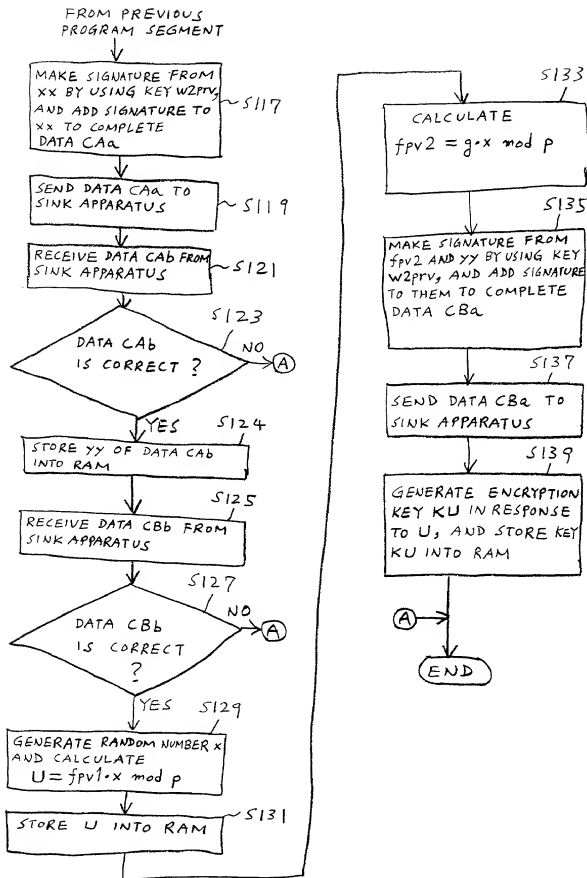 FROM PREVIOUS
PROGRAM SEGMENT
MAKE SIGNATURE FROM
xx BY USING KEY w2prv,
AND ADD SIGNATURE TO
xx TO COMPLETE
DATA CAa
S117
SEND DATA CAa TO
SINK APPARATUS
S119
RECEIVE DATA CAb FROM
SINK APPARATUS
S121
S123
DATA CAb
IS CORRECT ?
NO
A
YES
S124
STORE yy OF DATA CAb
INTO RAM
S125
RECEIVE DATA CBb FROM
SINK APPARATUS
S127
DATA CBb
IS CORRECT
?
NO
A
YES
S129
GENERATE RANDOM NUMBER x
AND CALCULATE
U = fpv1·x mod p
S131
STORE U INTO RAM
S133
CALCULATE
fpv2 = g·x mod p
S135
MAKE SIGNATURE FROM
fpv2 AND yy BY USING KEY
w2prv, AND ADD SIGNATURE
TO THEM TO COMPLETE
DATA CBa
S137
SEND DATA CBa TO
SINK APPARATUS
S139
GENERATE ENCRYPTION
KEY KU IN RESPONSE
TO U, AND STORE KEY
KU INTO RAM
A
END